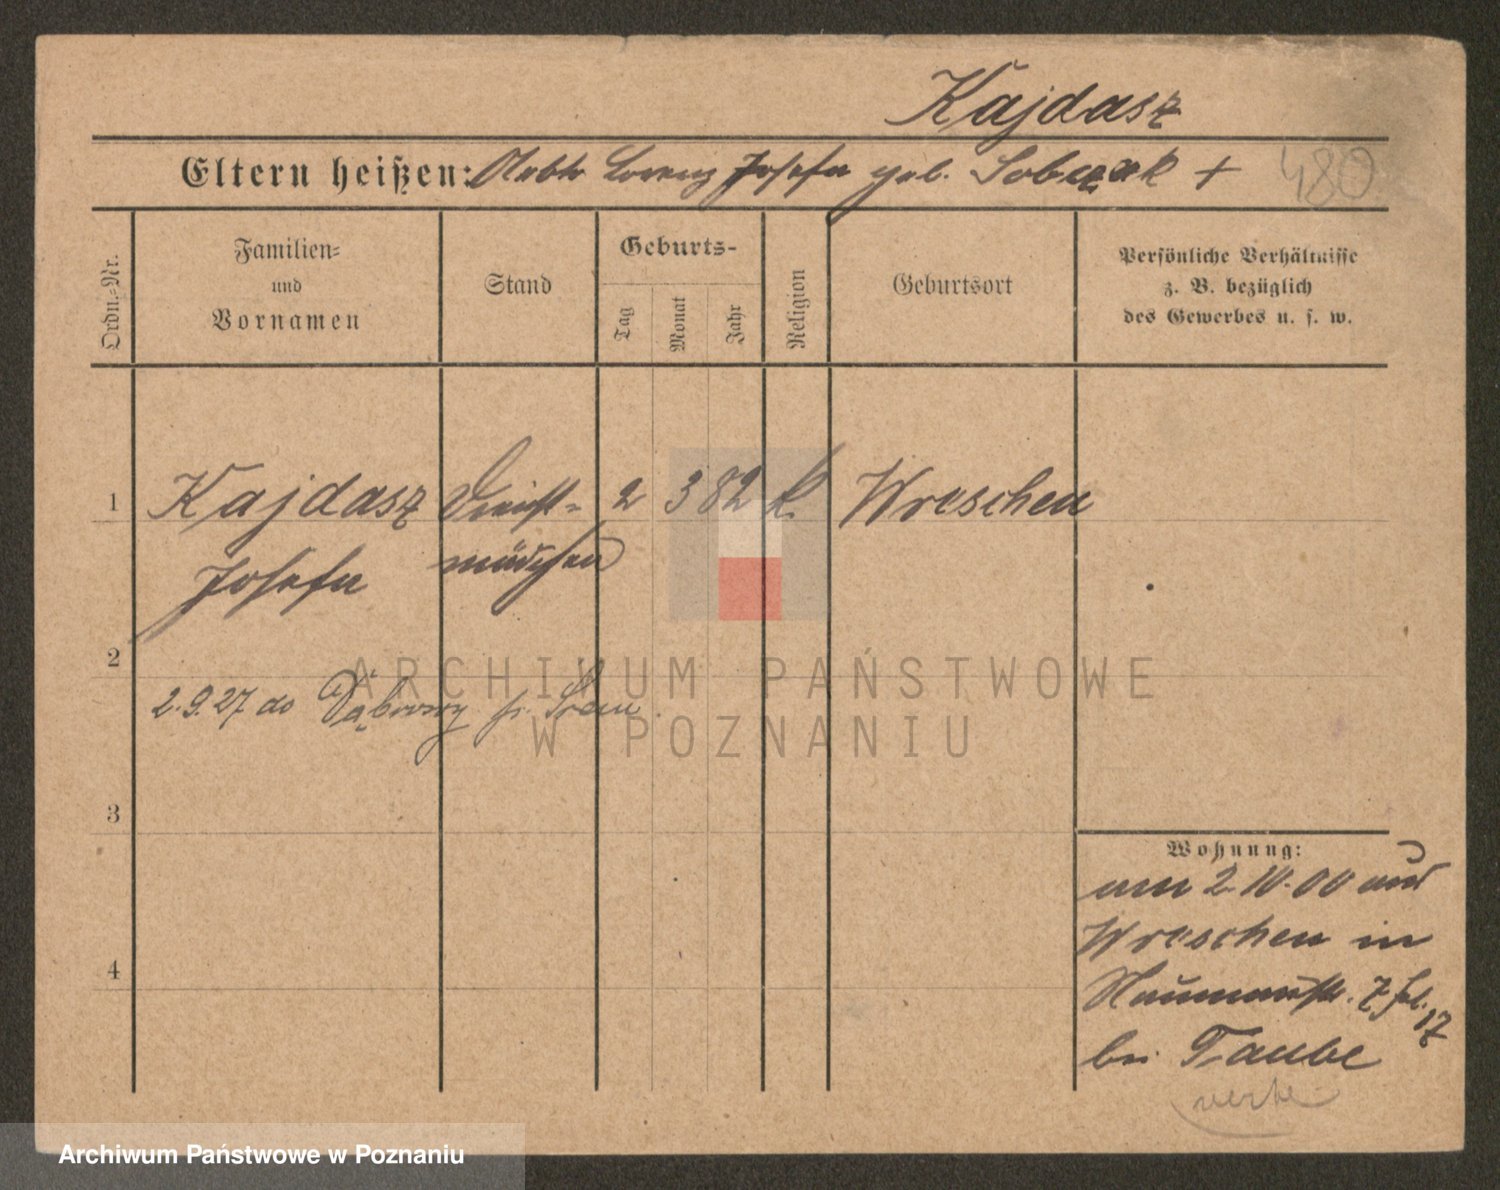 Kajdasz
Eltern heißen: Arbtr Lorenz Josefa geb. Sobczak +
480
Ordn.-Nr.
Familien-
und
Vornamen
Stand
Geburts-
Tag
Monat
Jahr
Religion
Geburtsort
Persönliche Verhältnisse
z. B. bezüglich
des Gewerbes u. s. w.
1 Kajdasz Dienst- 2 3 82 k. Wreschen
Josefa mädchen
2
2.9.27 do Dąbrowy p. Śrem
3
4
Wohnung:
am 2.10.00 aus
Wreschen in
Naumannstr. 7
bei Taube
ARCHIWUM PAŃSTWOWE
W POZNANIU
Archiwum Państwowe w Poznaniu